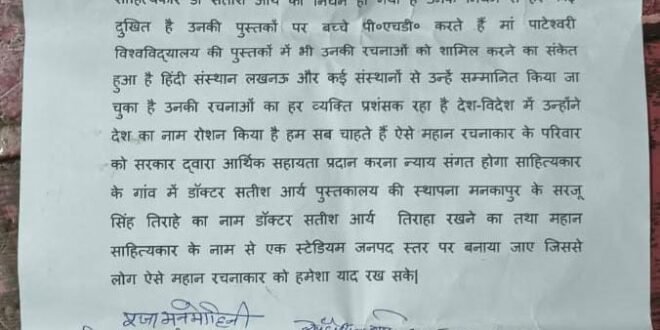 साहित्यकार डॉ सतीश आर्य का निधन हो गया है उनके निधन से हर कोई
दुखित है उनकी पुस्तकों पर बच्चे पी०एचडी० करते हैं मां पाटेश्वरी
विश्वविद्यालय की पुस्तकों में भी उनकी रचनाओं को शामिल करने का संकेत
हुआ है हिंदी संस्थान लखनऊ और कई संस्थानों से उन्हें सम्मानित किया जा
चुका है उनकी रचनाओं का हर व्यक्ति प्रशंसक रहा है देश-विदेश में उन्होंने
देश का नाम रोशन किया है हम सब चाहते हैं ऐसे महान रचनाकार के परिवार
को सरकार द्वारा आर्थिक सहायता प्रदान करना न्याय संगत होगा साहित्यकार
के गांव में डॉक्टर सतीश आर्य पुस्तकालय की स्थापना मनकापुर के सरजू
सिंह तिराहे का नाम डॉक्टर सतीश आर्य तिराहा रखने का तथा महान
साहित्यकार के नाम से एक स्टेडियम जनपद स्तर पर बनाया जाए जिससे
लोग ऐसे महान रचनाकार को हमेशा याद रख सके|